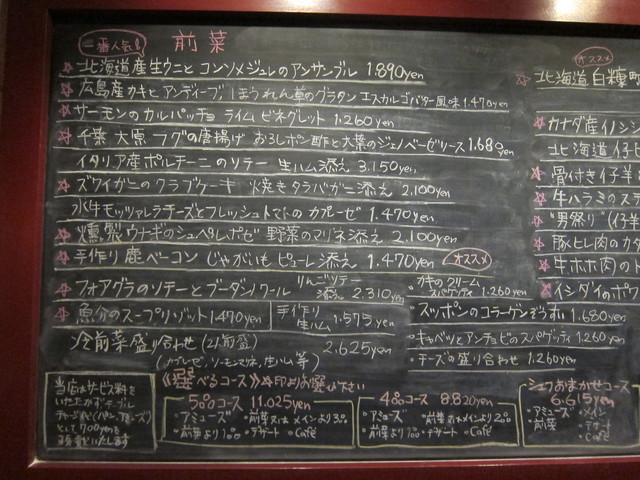 一番人気! 前菜
☆北海道産生ウニとコンソメジュレのアンサンブル 1.890yen
☆広島産カキとアンディーブ、ほうれん草のグラタン エスカルゴバター風味 1.470yen
☆サーモンのカルパッチョ ライムビネグレット 1.260yen
☆千葉 大原 フグの唐揚げ おろしポン酢と大葉のジェノベーゼソース 1.680yen
イタリア産ポルチーニのソテー 生ハム添え 3.150yen
☆ズワイガニのクラブケーキ 焼きタラバガニ添え 2.100yen
水牛モッツァレラチーズとフレッシュトマトのカプレーゼ 1.470yen
☆燻製ウナギのシュペルポゼ 野菜のマリネ添え 2.100yen
☆手作り鹿ベーコン じゃがいもピューレ添え 1.470yen オススメ
☆フォアグラのソテーとブーダンノワール りんごソテー添え 2.310yen
☆魚介のスープリゾット 1470yen
手作り生ハム 1.575yen
冷前菜盛り合わせ(2人前盛) 2.625yen
(カプレーゼ、サーモンマリネ、生ハム等)
カキのクリームスパゲッティ 1.260yen
・スッポンのコラーゲンぞうすい 1.680yen
・キャベツとアンチョビのスパゲッティ 1.260yen
・チーズの盛り合わせ 1.260yen
当店はサービス料をいただかずテーブルチャージとして700yenを頂戴いたします
《選べるコース》☆印よりお選び下さい
5皿コース 11.025yen
・アミューズ ・前菜又はメインより3皿
・前菜より1皿 ・デザート ・Café
4皿コース 8.820yen
・アミューズ ・前菜又はメインより2皿
・前菜より1皿 ・デザート ・Café
シェフおまかせコース
6.615yen
・アミューズ ・メイン
・前菜 ・デザート
・Café
オススメ
☆北海道 白糠町
☆カナダ産イノシシ
北海道 仔ヒ
☆骨付き仔羊
☆牛ハラミのス
☆"男祭り"(仔羊
☆豚ヒレ肉のカ
☆牛ホホ肉の
☆イシダイのポワ